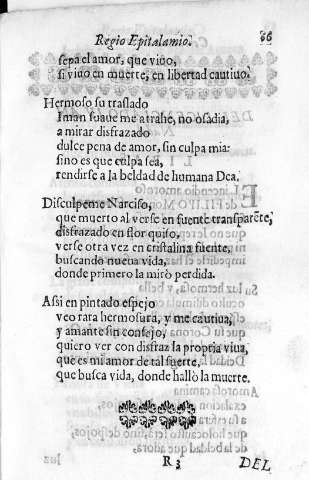 Regio Epitalamio. 66
sepa el amor, que viuo,
si viuo en muerte, en libertad cautiuo.
Hermoso su traslado
Iman suaue me atrahe, no osadia,
a mirar disfrazado
dulce pena de amor, sin culpa mia:
sino es que culpa sea,
rendirse a la beldad de humana Dea.
Disculpeme Narciso,
que muerto al verse en fuente transparẽte,
disfrazado en flor quiso,
verse otra vez en cristalina fuente,
buscando nueua vida,
donde primero la mirò perdida.
Assi en pintado espejo
veo rara hermosura, y me cautiua,
y amante sin consejo,
quiero ver con disfraz la propria viua,
que es mi amor de tal suerte,
que busca vida, donde hallò la muerte.
R 3 DEL